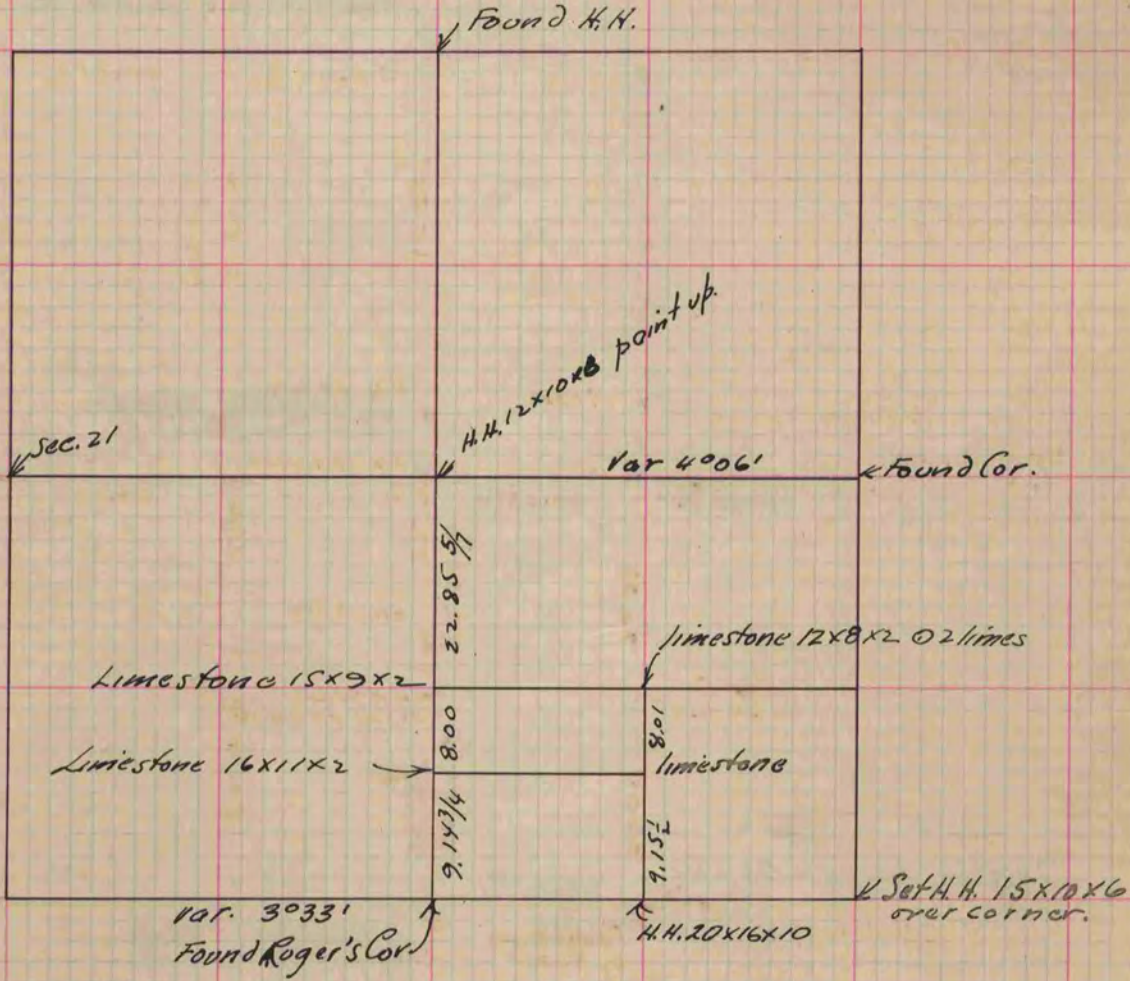 Found H.H.
H.H. 12x10x8 point up.
Sec. 21
Var 4°06'
Found Cor.
22.85 5/7
limestone 12x8x2 ⊙ 2 limes
Limestone 15x9x2
8.00
8.01
Limestone 16x11x2
limestone
9.14 3/4
9.15 1/2
Set H.H. 15x10x6
over corner.
Var. 3°33'
H.H. 20x16x10
Found Roger's Cor.